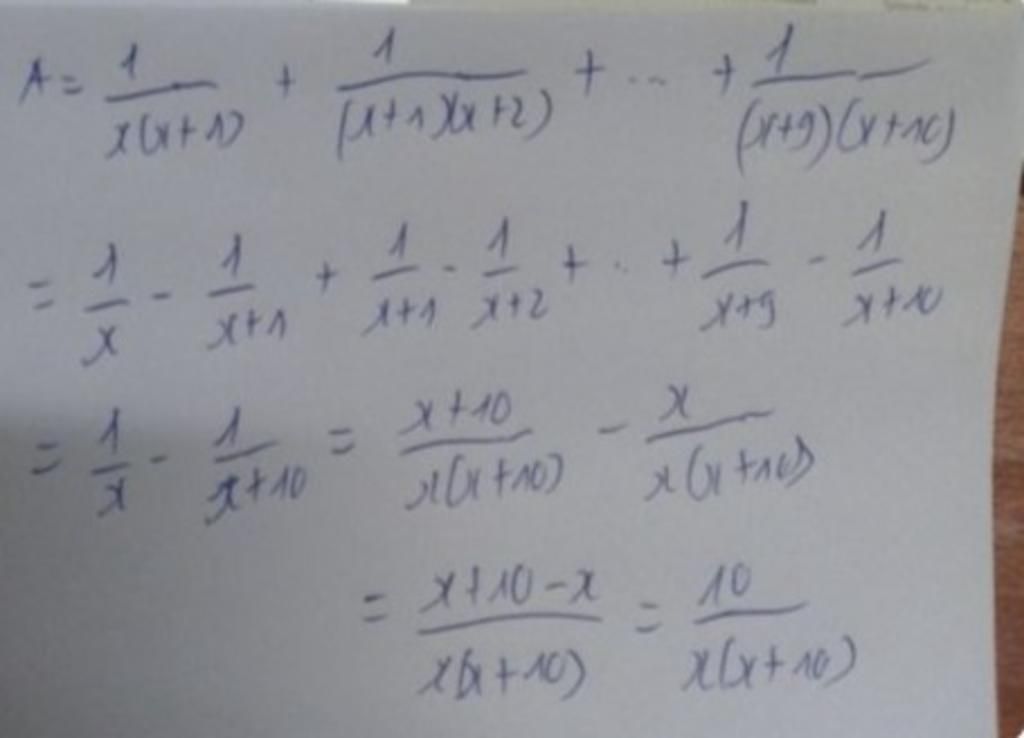 A = 1/(x(x+1)) + 1/((x+1)(x+2)) + ... + 1/((x+9)(x+10))
= 1/x - 1/(x+1) + 1/(x+1) - 1/(x+2) + .. + 1/(x+9) - 1/(x+10)
= 1/x - 1/(x+10) = (x+10)/(x(x+10)) - x/(x(x+10))
= (x+10-x)/(x(x+10)) = 10/(x(x+10))